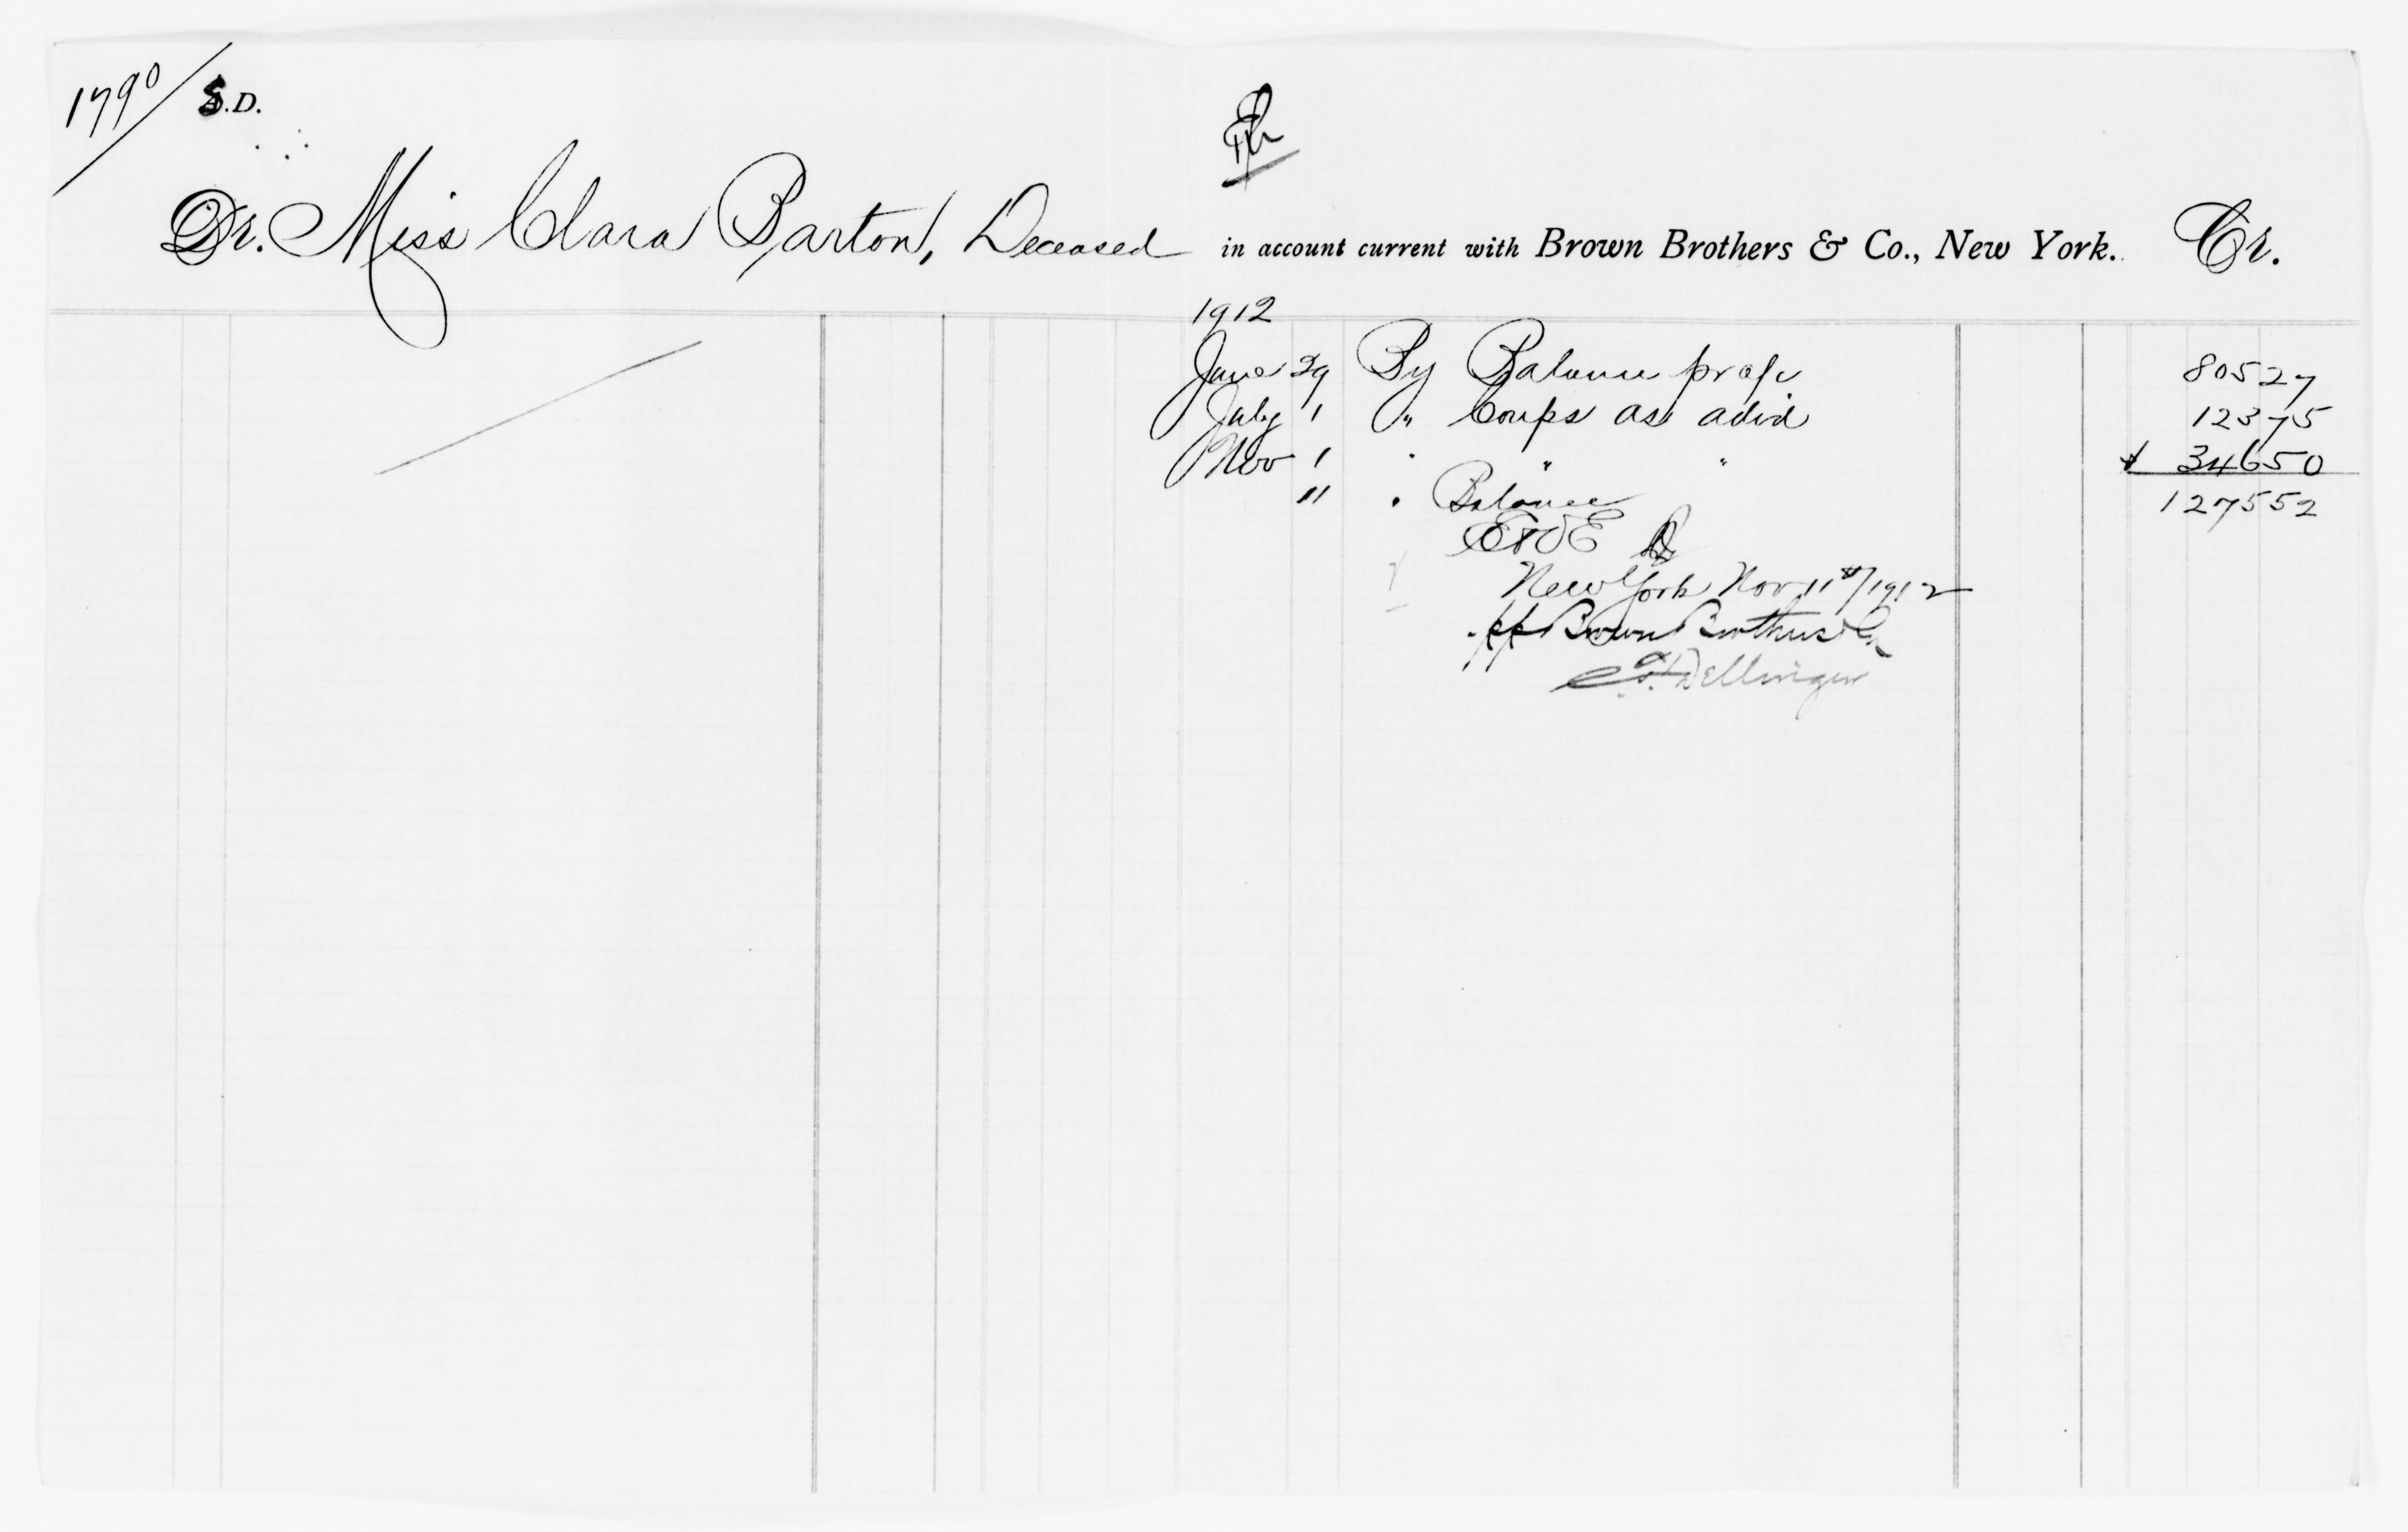 1790 S.D.
Dr. Miss Clara Barton, Deceased in account current with Brown Brothers & Co., New York. Cr.
1912
June 29 By Balance pr a/c 805 27
July 1 " Coups as adv'd 123 75
Nov 1 " " " $ 346 50
11 " Balance 1275 52
E&OE
New York Nov 11th/1912
pp Brown Brothers Co
Dellinger